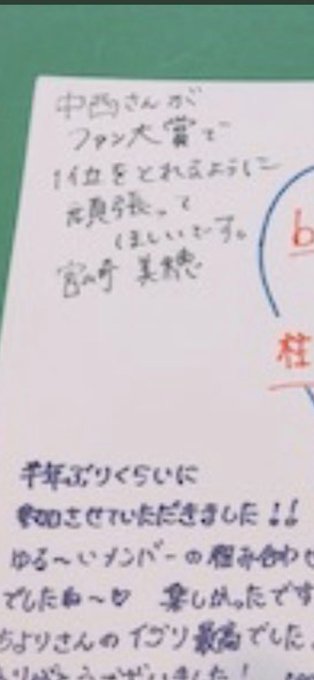 中西さんが
ファン大賞で
1位をとれるように
頑張って
ほしいです。
宮崎 美穂
b
柱
半年ぶりくらいに
参加させていただきました!!
ゆる〜いメンバーの組み合わせ
でしたね〜♡ 楽しかったです
ちよりさんのイゴリ最高でした
ありがとうございました!